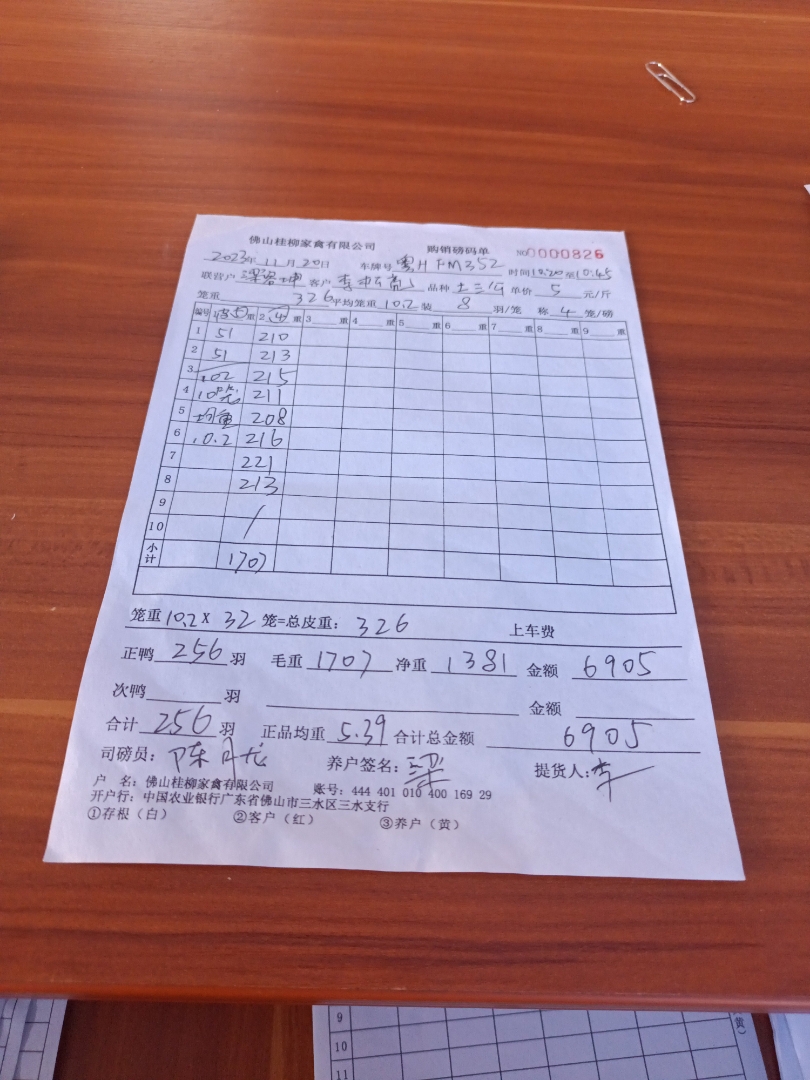 佛山桂柳家禽有限公司 购销磅码单 NO 0000826
2023年 11月 20日 车牌号 粤H FM352 时间 10:20至10:45
联营户 客户 品种 土三 单价 5 元/斤
笼重 326 平均笼重 10.2 装 8 羽/笼 称 4 笼/磅
编号 重 2 重 3 重 4 重 5 重 6 重 7 重 8 重 9 重
1 51 210
2 51 213
3 102 215
4 10 211
5 均重 208
6 10.2 216
7 221
8 213
9 /
10
小计 1707
笼重 10.2 X 32 笼=总皮重: 326 上车费
正鸭 256 羽 毛重 1707 净重 1381 金额 6905
次鸭 羽 金额
合计 256 羽 正品均重 5.39 合计总金额 6905
司磅员: 陈 养户签名: 梁 提货人: 李
户 名: 佛山桂柳家禽有限公司 账号: 444 401 010 400 169 29
开户行: 中国农业银行广东省佛山市三水区三水支行
①存根(白) ②客户(红) ③养户(黄)
9
10
11
黄)